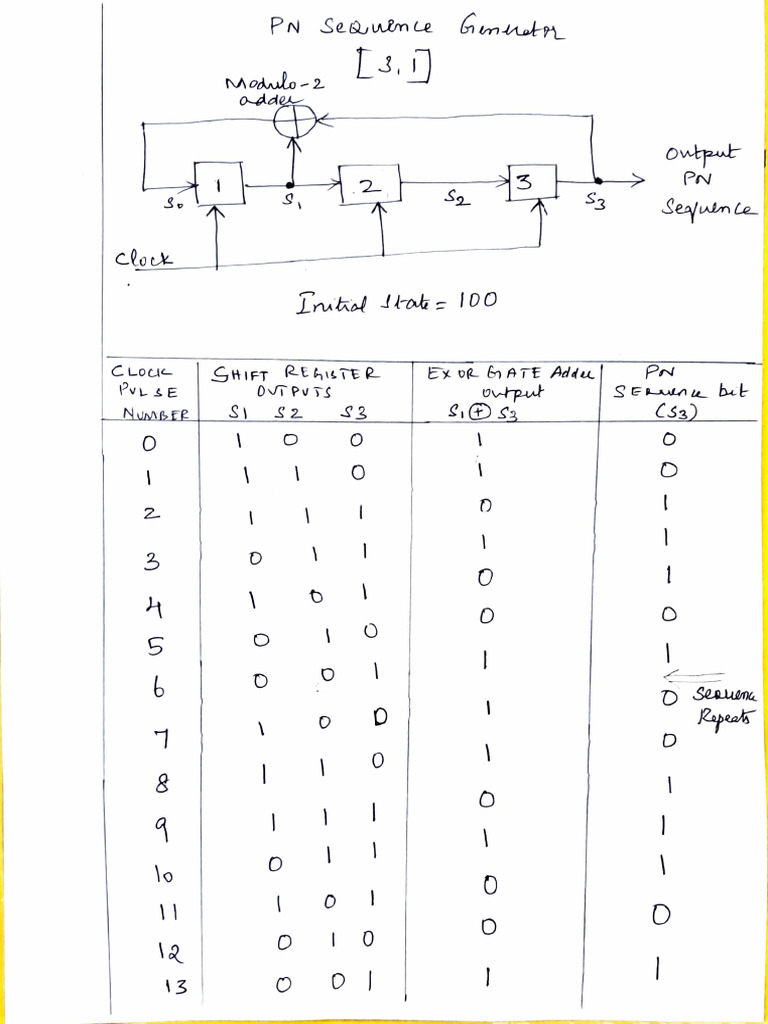 PN Sequence Generator
[3,1]
Modulo-2
adder
1 2 3
S0 S1 S2 S3
Output
PN
Sequence
Clock
Initial State = 100
CLOCK PULSE NUMBER | SHIFT REGISTER OUTPUTS S1 S2 S3 | EX OR GATE Adder output S1 ⊕ S3 | PN SEQUENCE bit (S3)
0 | 1 0 0 | 1 | 0
1 | 1 1 0 | 1 | 0
2 | 1 1 1 | 0 | 1
3 | 0 1 1 | 1 | 1
4 | 1 0 1 | 0 | 1
5 | 0 1 0 | 0 | 0
6 | 0 0 1 | 1 | 1
Sequence Repeats
7 | 1 0 0 | 1 | 0
8 | 1 1 0 | 1 | 0
9 | 1 1 1 | 0 | 1
10 | 0 1 1 | 1 | 1
11 | 1 0 1 | 0 | 1
12 | 0 1 0 | 0 | 0
13 | 0 0 1 | 1 | 1